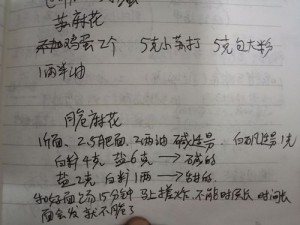 苏麻花
添加鸡蛋2个 5克小苏打 5克包大粉
1两羊油
脆麻花
1斤面、2.5肥面、2两油 碱适量、白矾适量1克
白粉4克 盐6克 → 咸的
盐2克 白粉1两 → 甜的
和好面汤15分钟 马上搓炸 不能时间长 时间长
面会发 就不脆了